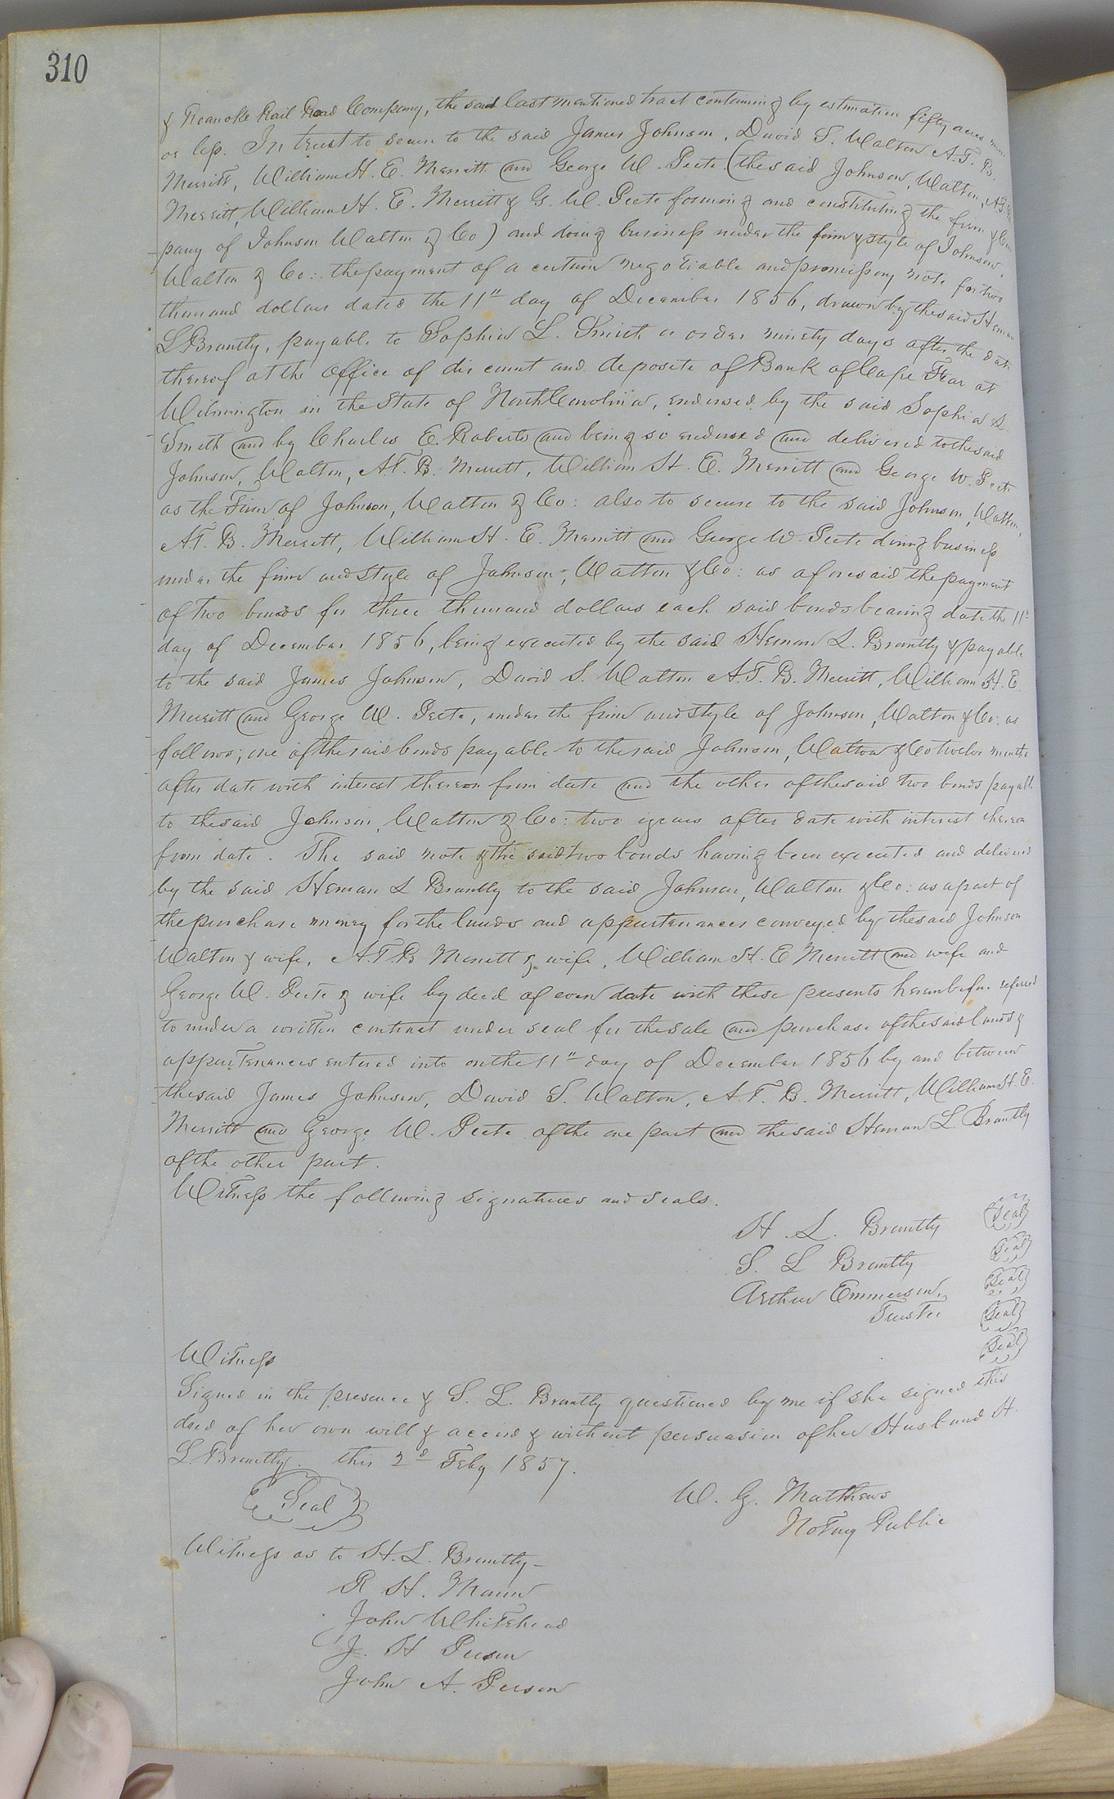 310
& Roanoke Rail Road Company, the said last mentioned tract containing by estimation fifty acres more
or less. In trust to secure to the said James Johnson, David S. Walton A.T. B.
Merritt, William H. E. Merritt and George W. Peete (the said Johnson, Walton, A.T.B.
Merritt, William H. E. Merritt & G. W. Peete forming and constituting the firm & Com
pany of Johnson Walton & Co) and doing business under the firm & style of Johnson,
Walton & Co: the payment of a certain negotiable and promissory note for two
thousand dollars dated the 11th day of December 1856, drawn by the said Heman
L Brantly, payable to Sophia L. Smith or order ninety days after the date
thereof at the office of discount and deposite of Bank of Cape Fear at
Wilmington in the State of North Carolina, endorsed by the said Sophia L
Smith and by Charles E. Roberts and being so endorsed and delivered to the said
Johnson, Walton, A.T. B. Merritt, William H. E. Merritt and George W. Peete
as the Firm of Johnson, Walton & Co: also to secure to the said Johnson, Walton,
A.T. B. Merritt, William H. E. Merritt and George W. Peete doing business
under the firm and style of Johnson, Walton & Co: as aforesaid the payment
of two bonds for three thousand dollars each said bonds bearing date the 11th
day of December 1856, being executed by the said Heman L. Brantly & payable
to the said James Johnson, David S. Walton A.T. B. Merritt, William H. E
Merritt and George W. Peete, under the firm and style of Johnson, Walton & Co: as
follows; one of the said bonds payable to the said Johnson, Walton & Co twelve months
after date with interest thereon from date and the other of the said two bonds payable
to the said Johnson, Walton & Co: two years after date with interest thereon
from date. The said note & the said two bonds having been executed and delivered
by the said Heman L Brantly to the said Johnson, Walton & Co: as a part of
the purchase money for the lands and appurtenances conveyed by the said Johnson
Walton & wife, A.T.B Merritt & wife, William H. E Merritt and wife and
George W. Peete & wife by deed of even date with these presents hereinbefore referred
to under a written contract under seal for the sale and purchase of the said lands &
appurtenances entered into on the 11th day of December 1856 by and between
the said James Johnson, David S. Walton, A.T. B. Merritt, William H. E.
Merritt and George W. Peete of the one part and the said Heman L Brantly
of the other part.
Witness the following signatures and seals.
H. L. Brantly Seal
S. L Brantly Seal
Arthur Emmerson, Seal
Trustee Seal
Seal
Witness
Signed in the presence & S. L. Brantly questioned by me if she signed this
deed of her own will & accord & without persuasion of her Husband H.
L Brantly. this 2d Feby 1857.
Seal
W. G. Matthews
Notary Public
Witness as to H. L. Brantly-
R H. Mann
John Whitehead
J. H Person
John A. Person